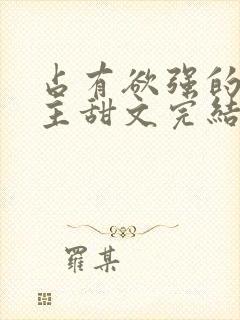 占有欲强的
主甜文完結
羅某